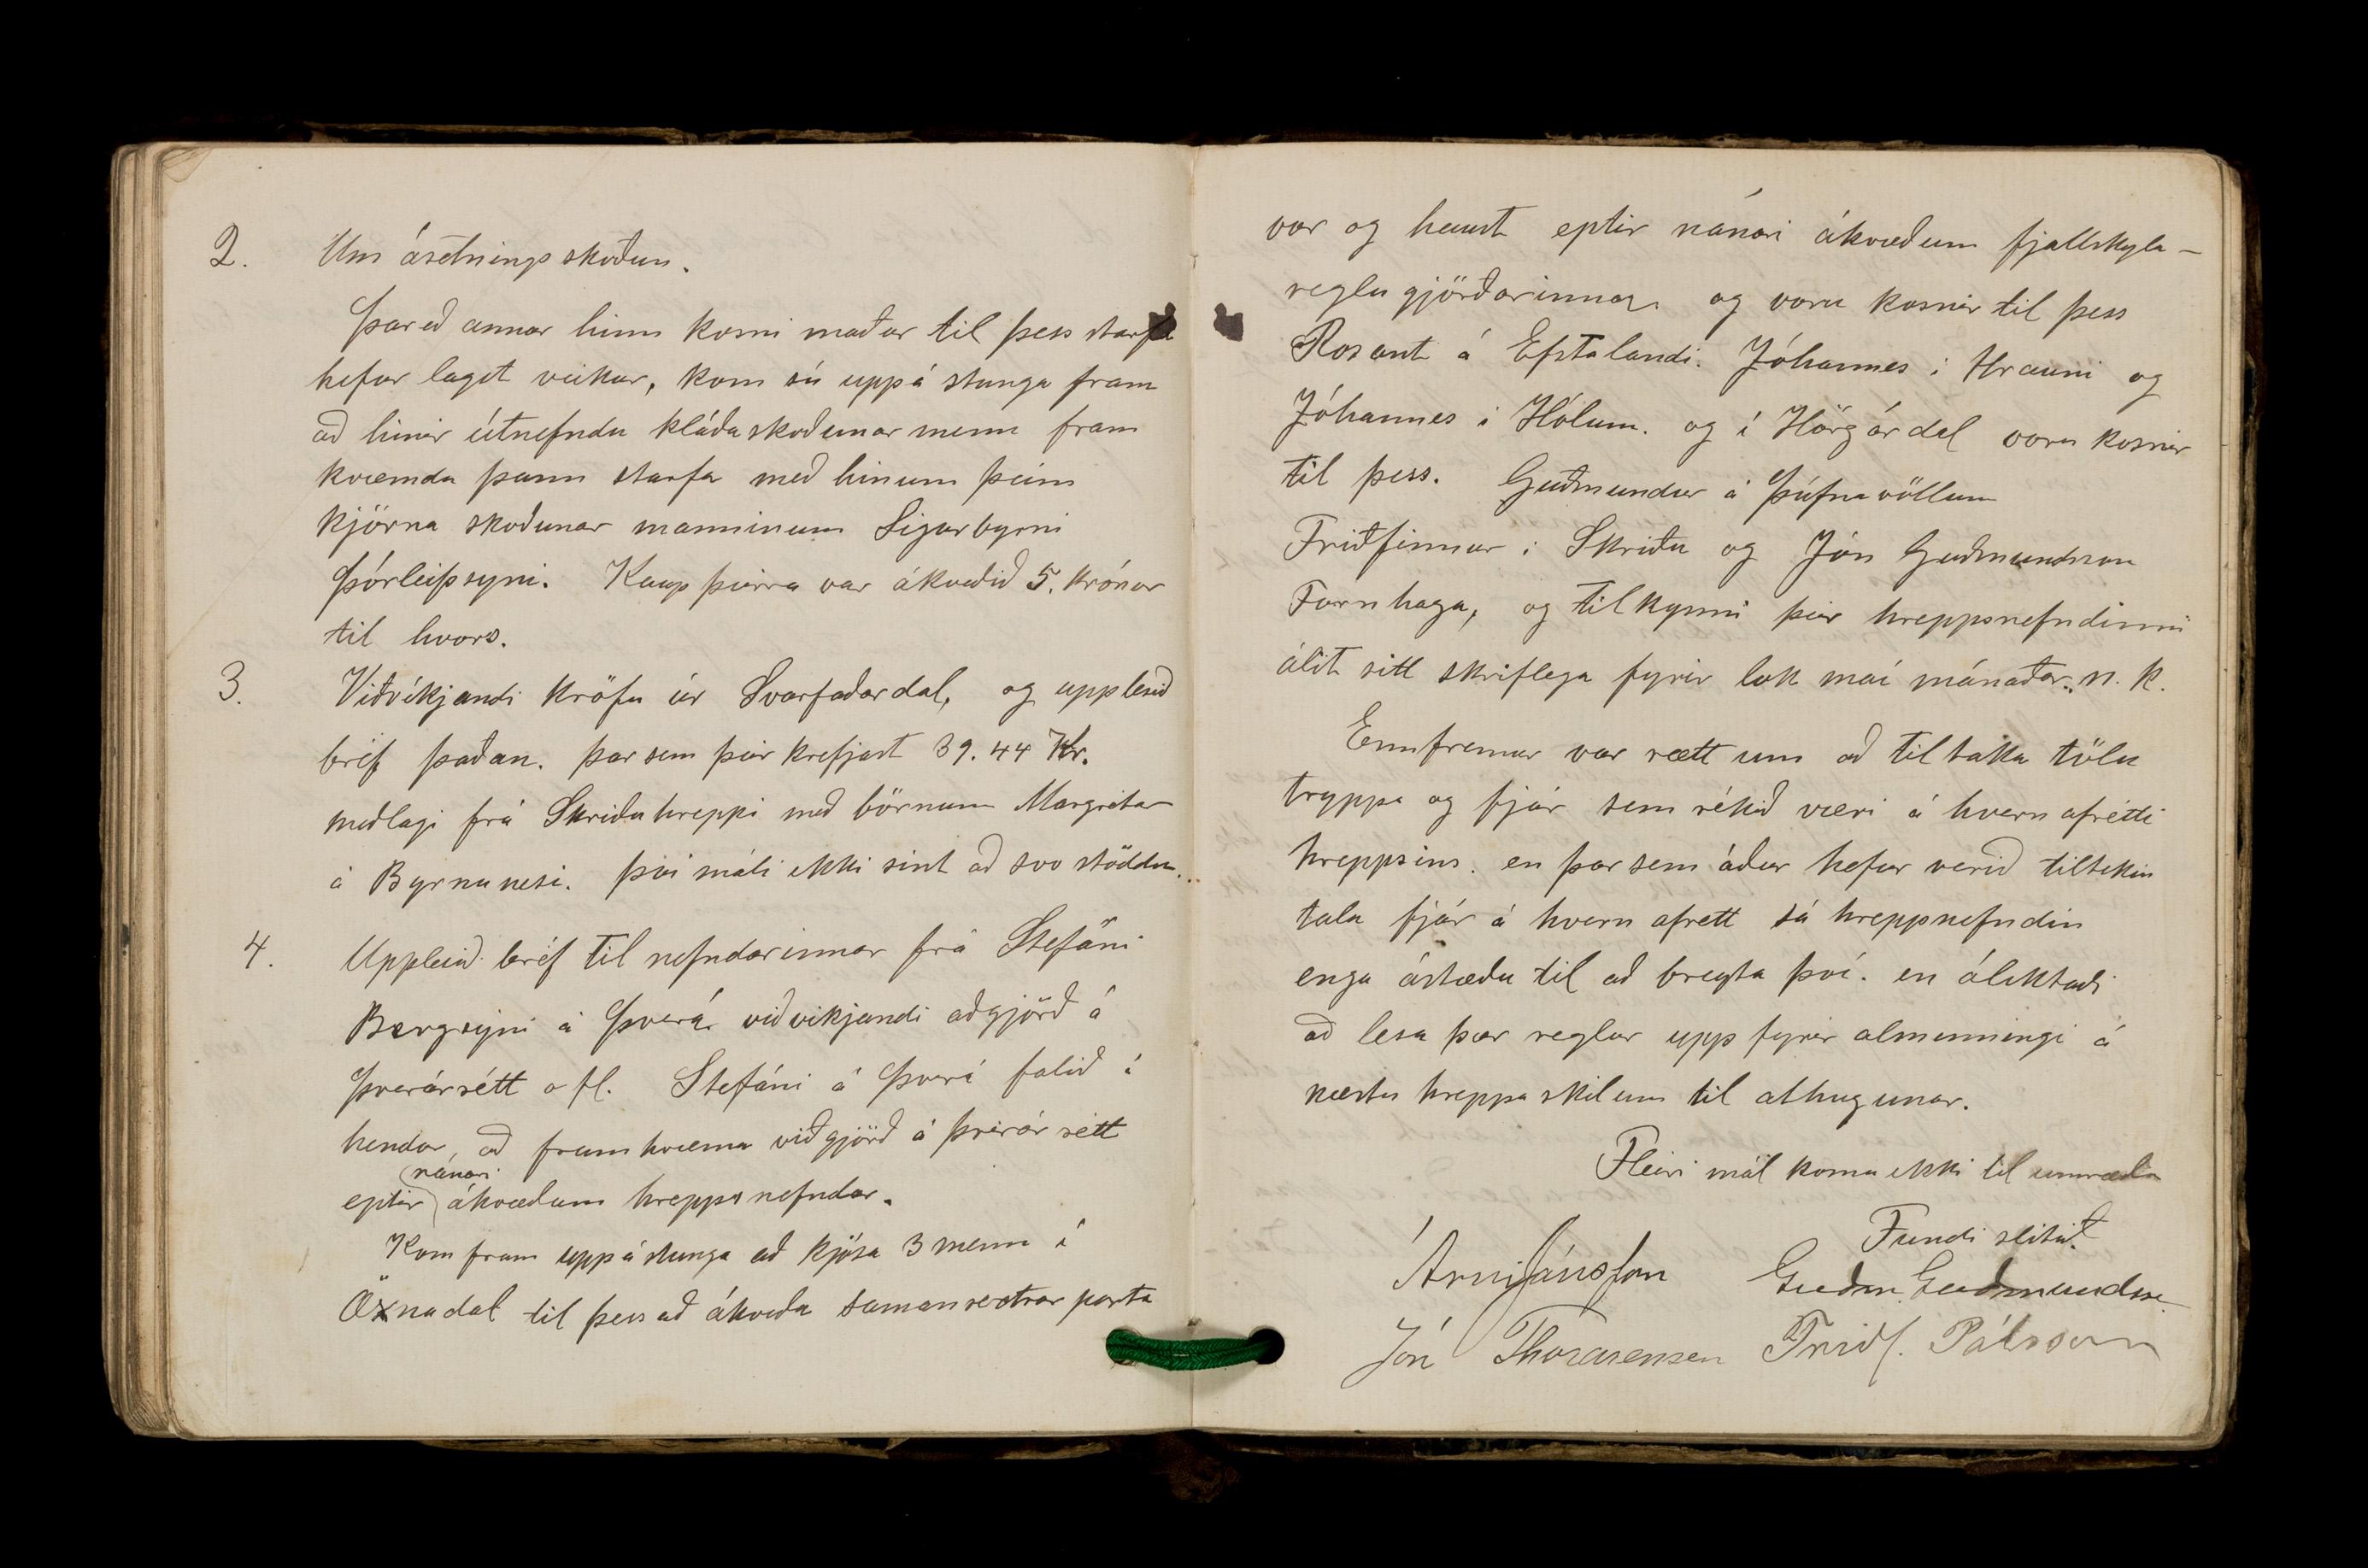 2. Um ásetningsskoðun.
Þareð annar hinn kosni maður til þess starfa
hefur legið veikur, kom sú uppá stunga fram
að hinir útnefndu kláðaskoðunar menn fram
kvæmdu þann starfa með hinum þeim
kjörna skoðunar manninum Sigurbyrni
Þórleifssyni. Kaup þeirra var ákveðið 5. krónur
til hvors.
3. Viðvíkjandi kröfu úr Svarfaðardal, og upplesið
bréf þaðan. þar sem þeir krefjast 39.44 Kr.
meðlagi frá Skriðuhreppi með börnum Margrétar
á Byrnunesi. því máli ekki sint að svo stöddu.
4. Upplesið bréf til nefndarinnar frá Stefáni
Bergsyni á Þverá viðvikjandi aðgjörð á
Þverárrétt o fl. Stefáni á Þverá falið í
hendur, að framkvæma viðgjörð á þverár rétt
eptir nánari ákvæðum hreppsnefndar.
Kom fram uppástunga að kjósa 3 menn í
Öxnadal til þess að ákveða samanrestrar parta
vor og haust eptir nánari ákvæðum fjallskyla-
reglugjörðarinnar og voru kosnir til þess
Rosant á Efstalandi. Jóhannes í Hrauni og
Jóhannes í Hólum. og í Hörgárdal voru kosnir
til þess. Guðmundur á Þúfnavöllum
Friðfinnur í Skriðu og Jón Guðmundsson
Fornhaga, og tilkynni þeir hreppsnefndinni
álit sitt skriflega fyrir lok maí mánaðar. n. k.
Ennfremur var rætt um að tiltaka tölu
tryppa og fjár sem rékið væri á hvern afrétti
hreppsins. en þar sem áður hefur verið tiltekin
tala fjár á hvern afrett sá hreppnefndin
enga ástæðu til að breyta því. en áliktaði
að lesa þær reglur upp fyrir almenningi á
næstu hreppaskilum til athugunar.
Fleiri mál komu ekki til umræðu
Fundi slitið.
Árni Jónsson Guðm. Guðmundsso
Jón Thorarensen Friðf. Pálsson